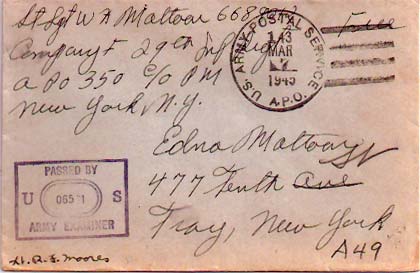 St Sgt W A Mattoon
Free
Company F 29th Inf Regt
A Po 350 c/o P M
New York, N.Y.
U.S. ARMY POSTAL SERVICE
143
MAR
1945
A.P.O.
Edna Mattoon
477 Tenth Ave
Troy, New York
A49
PASSED BY
U S
ARMY EXAMINER
Lt. R. E. Moores